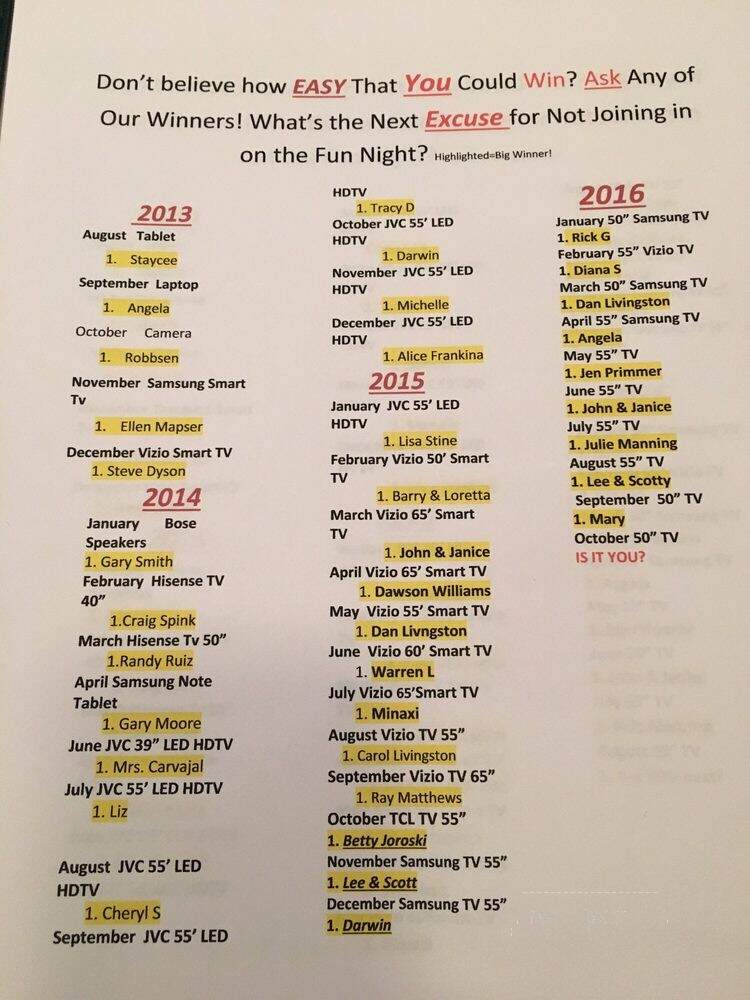 Don't believe how EASY That You Could Win? Ask Any of
Our Winners! What's the Next Excuse for Not Joining in
on the Fun Night? Highlighted=Big Winner!
2013
August Tablet
1. Staycee
September Laptop
1. Angela
October Camera
1. Robbsen
November Samsung Smart
Tv
1. Ellen Mapser
December Vizio Smart TV
1. Steve Dyson
2014
January Bose
Speakers
1. Gary Smith
February Hisense TV
40”
1.Craig Spink
March Hisense Tv 50”
1.Randy Ruiz
April Samsung Note
Tablet
1. Gary Moore
June JVC 39” LED HDTV
1. Mrs. Carvajal
July JVC 55’ LED HDTV
1. Liz
August JVC 55’ LED
HDTV
1. Cheryl S
September JVC 55’ LED
HDTV
1. Tracy D
October JVC 55’ LED
HDTV
1. Darwin
November JVC 55’ LED
HDTV
1. Michelle
December JVC 55’ LED
HDTV
1. Alice Frankina
2015
January JVC 55’ LED
HDTV
1. Lisa Stine
February Vizio 50’ Smart
TV
1. Barry & Loretta
March Vizio 65’ Smart
TV
1. John & Janice
April Vizio 65’ Smart TV
1. Dawson Williams
May Vizio 55’ Smart TV
1. Dan Livngston
June Vizio 60’ Smart TV
1. Warren L
July Vizio 65’Smart TV
1. Minaxi
August Vizio TV 55”
1. Carol Livingston
September Vizio TV 65”
1. Ray Matthews
October TCL TV 55”
1. Betty Joroski
November Samsung TV 55”
1. Lee & Scott
December Samsung TV 55”
1. Darwin
2016
January 50” Samsung TV
1. Rick G
February 55” Vizio TV
1. Diana S
March 50” Samsung TV
1. Dan Livingston
April 55” Samsung TV
1. Angela
May 55” TV
1. Jen Primmer
June 55” TV
1. John & Janice
July 55” TV
1. Julie Manning
August 55” TV
1. Lee & Scotty
September 50” TV
1. Mary
October 50” TV
IS IT YOU?